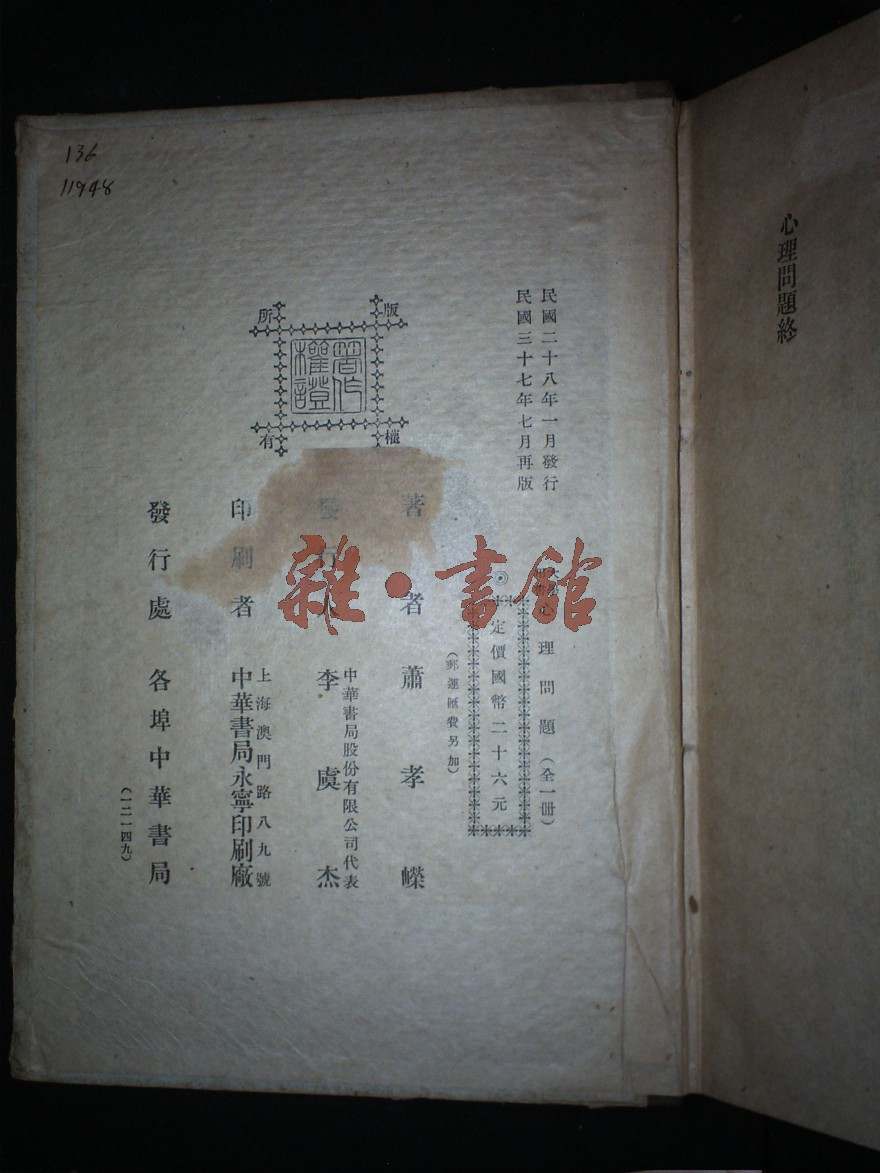 心理問題終
民國二十八年一月發行
民國三十七年七月再版
心理問題（全一冊）
◎定價國幣二十六元
（郵運匯費另加）
著者 蕭孝嶸
發行人 中華書局股份有限公司代表
李虞杰
印刷者 上海澳門路八九號
中華書局永寧印刷廠
發行處 各埠中華書局
（一二一四九）
版權所有
著作權證
136
11948
雜·書館